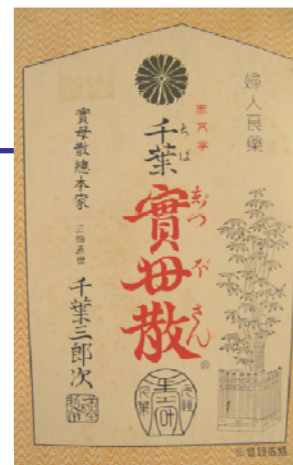 婦人良藥
千葉
ちば
實母散
じつぼさん
實母散總本家
三拾五世 千葉三郎次